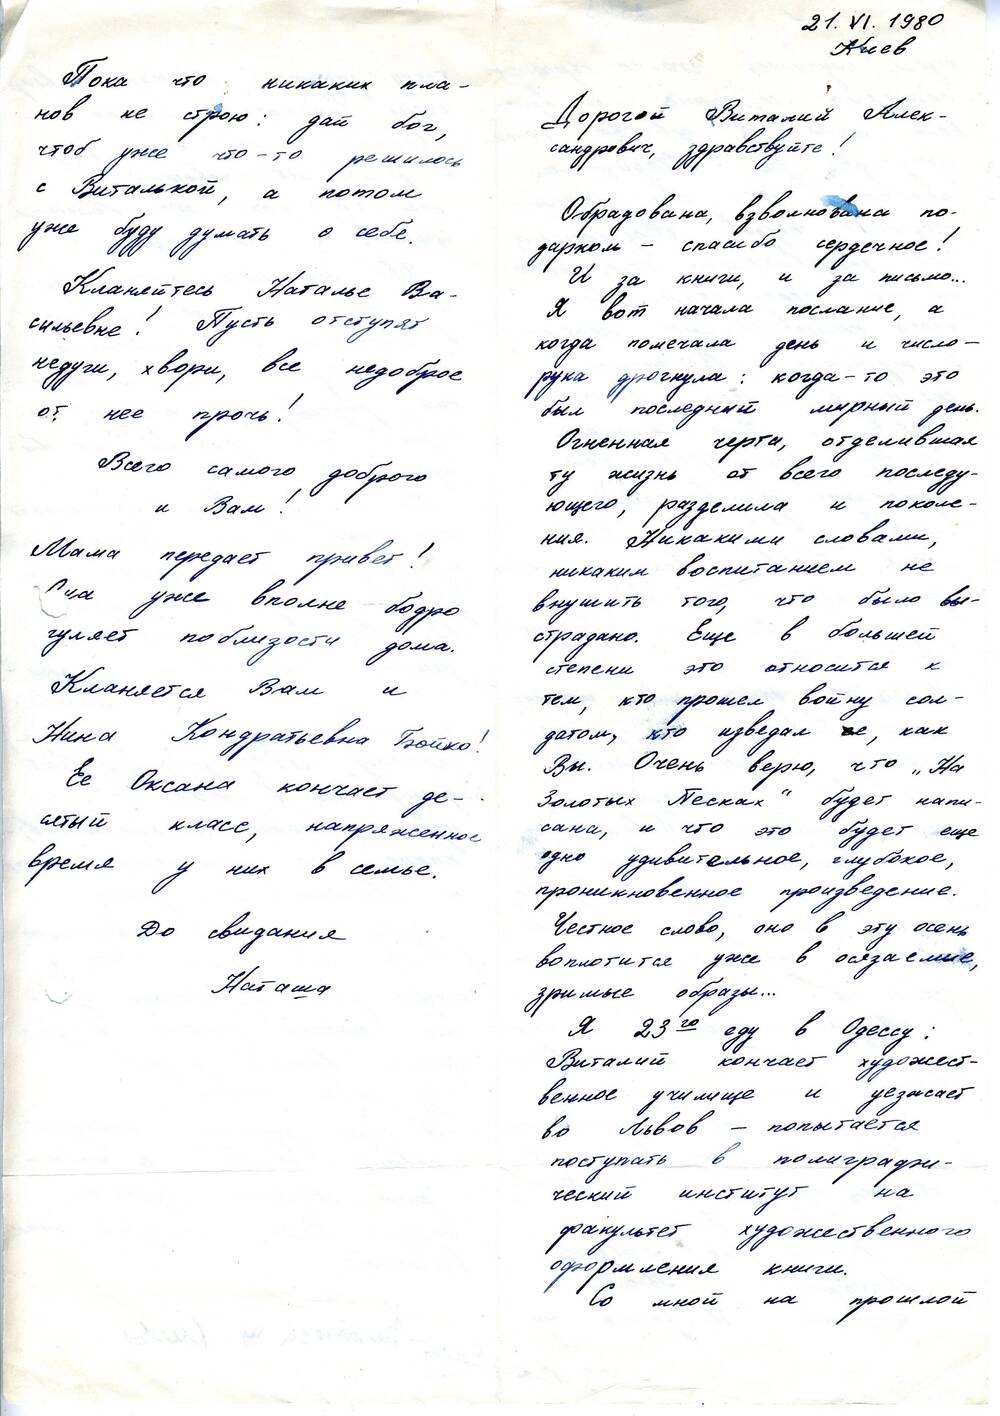 21. VI. 1980
Киев
Дорогой Виталий Алек-
сандрович, здравствуйте!
Обрадована, взволнована по-
дарком – спасибо сердечное!
И за книги, и за письмо...
Я вот начала послание, а
когда помечала день и число –
рука дрогнула: когда-то это
был последний мирный день.
Огненная черта, отделившая
ту жизнь от всего последу-
ющего, разделила и поколе-
ния. Никакими словами,
никаким воспитанием не
внушить того, что было вы-
страдано. Еще в большей
степени это относится к
тем, кто прошел войну сол-
датом, кто изведал ее, как
Вы. Очень верю, что „На
Золотых Песках“ будет напи-
сана, и что это будет еще
одно удивительное, глубокое,
проникновенное произведение.
Честное слово, оно в эту осень
воплотится уже в осязаемые,
зримые образы...
Я 23го еду в Одессу:
Виталий кончает художест-
венное училище и уезжает
во Львов – попытается
поступать в полиграфи-
ческий институт на
факультет художественного
оформления книги.
Со мной на прошлой
Пока что никаких пла-
нов не строю: дай бог,
чтоб уже что-то решилось
с Виталькой, а потом
уже буду думать о себе.
Кланяйтесь Наталье Ва-
сильевне! Пусть отступят
недуги, хвори, все недоброе
от нее прочь!
Всего самого доброго
и Вам!
Мама передает привет!
уже вполне бодро
гуляет поблизости дома.
Кланяется Вам и
Нина Кондратьевна Бойко!
Ее Оксана кончает де-
сятый класс, напряженное
время у них в семье.
До свидания
Наташа